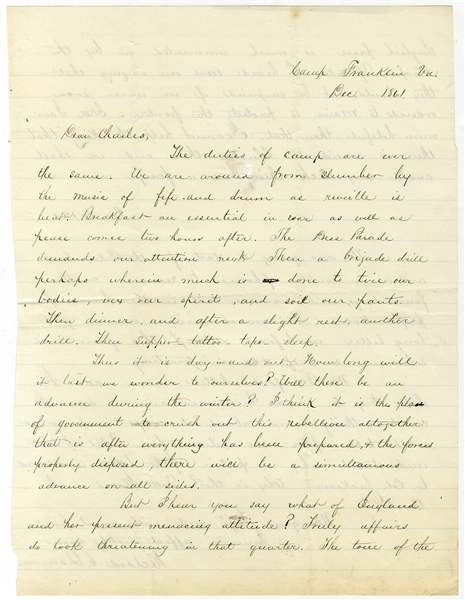 Camp Franklin Va.
Dec 1861
Dear Charles,
The duties of camp are ever
the same. We are aroused from slumber by
the music of fife and drum as reville is
beat. Breakfast an essential in war as well as
peace comes two hours after. The Dress Parade
demands our attention next. Then a brigade drill
perhaps wherein much is done to tire our
bodies, vex our spirits, and soil our pants.
Then dinner, and after a slight rest, another
drill. Then supper – tattoo – taps – sleep.
Thus it is day How long will
it last we wonder to ourselves? Will there be an
advance during the winter? I think it is the plan
of government to crush out this rebellion altogether
that is after everything has been prepared, & the forces
properly disposed, there will be a simultaneous
advance on all sides.
But I hear you say what of England
and her present menacing attitude? Truly affairs
do look threatening in that quarter. The tone of the